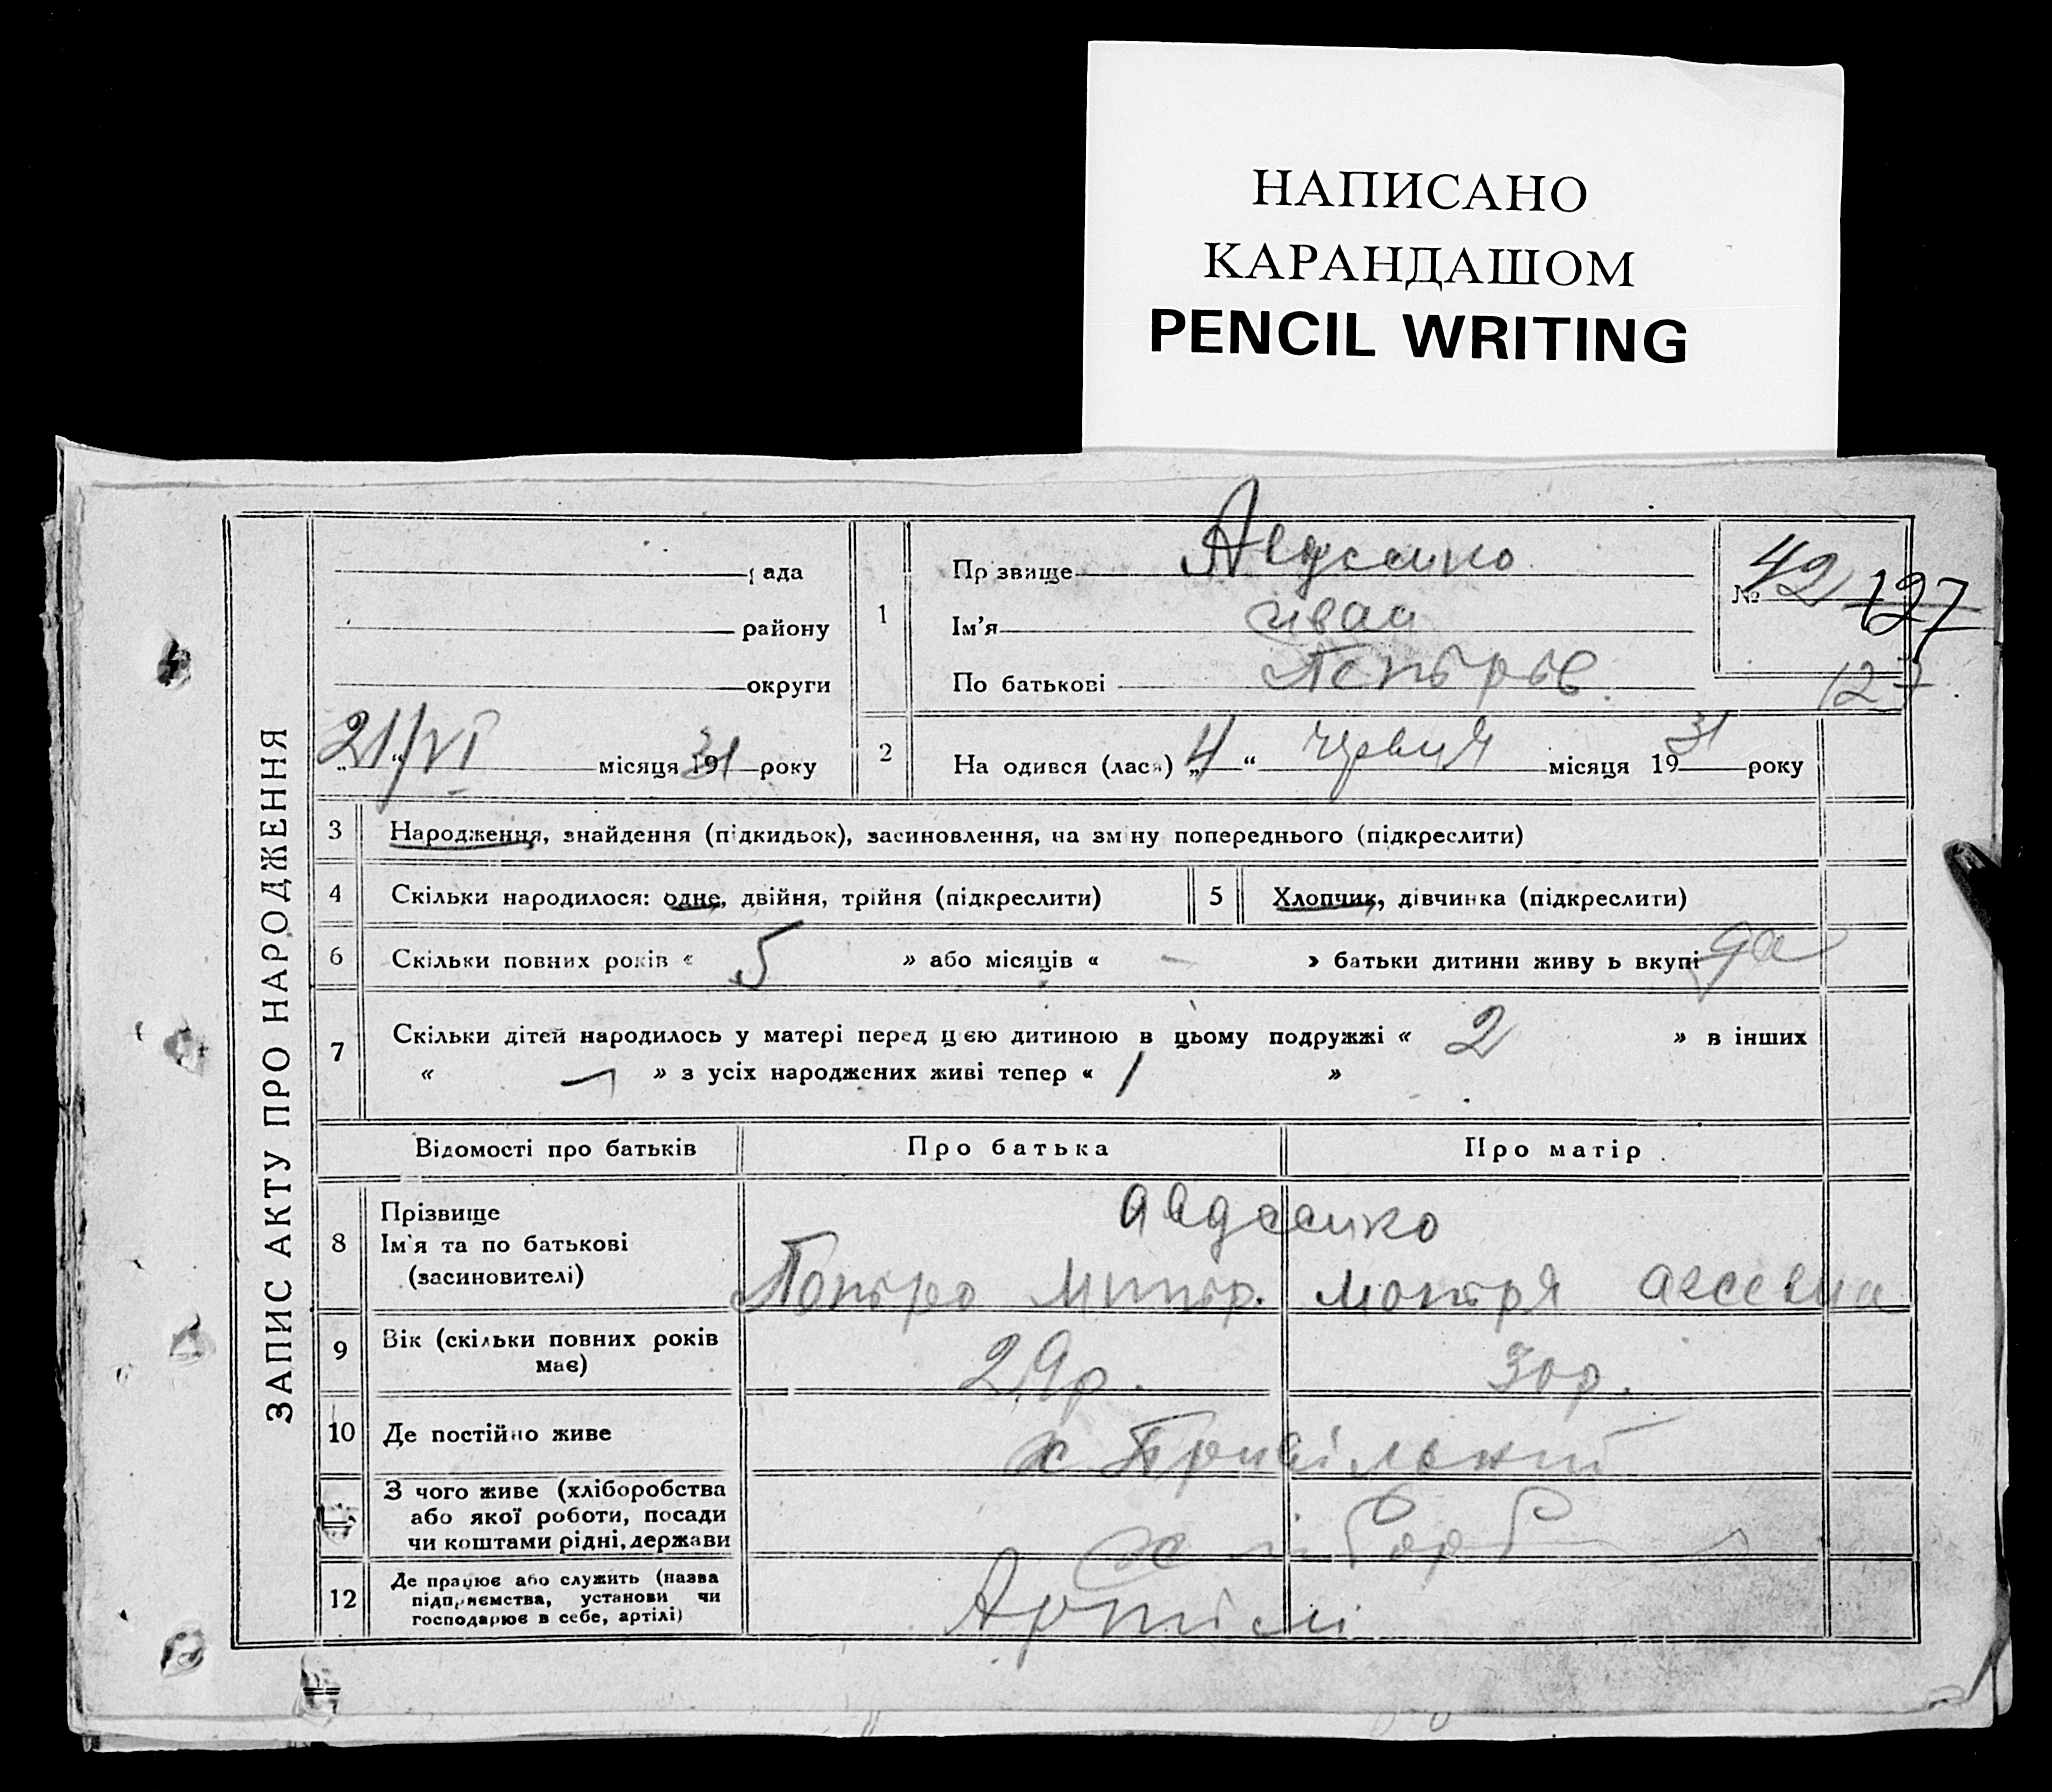 НАПИСАНО
КАРАНДАШОМ
PENCIL WRITING
ЗАПИС АКТУ ПРО НАРОДЖЕННЯ
рада
району
округи
21/VI місяця 1931 року
1
Прізвище
Ім'я Иван
По батькові Петров
№ 42 127
127
2 Народився (лася) „4“ червня місяця 1931 року
3 Народження, знайдення (підкидьок), засиновлення, на зміну попереднього (підкреслити)
4 Скільки народилося: одне, двійня, трійня (підкреслити)
5 Хлопчик, дівчинка (підкреслити)
6 Скільки повних років « 5 » або місяців « — » батьки дитини живуть вкупі да
7 Скільки дітей народилось у матері перед цією дитиною в цьому подружжі « 2 » в інших
« — » з усіх народжених живі тепер « 1 »
Відомості про батьків Про батька Про матір
8 Прізвище Авдеенко
Ім'я та по батькові
(засиновителі) Петро Митр. Мотря
9 Вік (скільки повних років
має) 29р. 30р.
10 Де постійно живе х. Привільний
З чого живе (хліборобства
або якої роботи, посади
чи коштами рідні, держави
12 Де працює або служить (назва
підприємства, установи чи
господарює в себе, артілі) Артілі